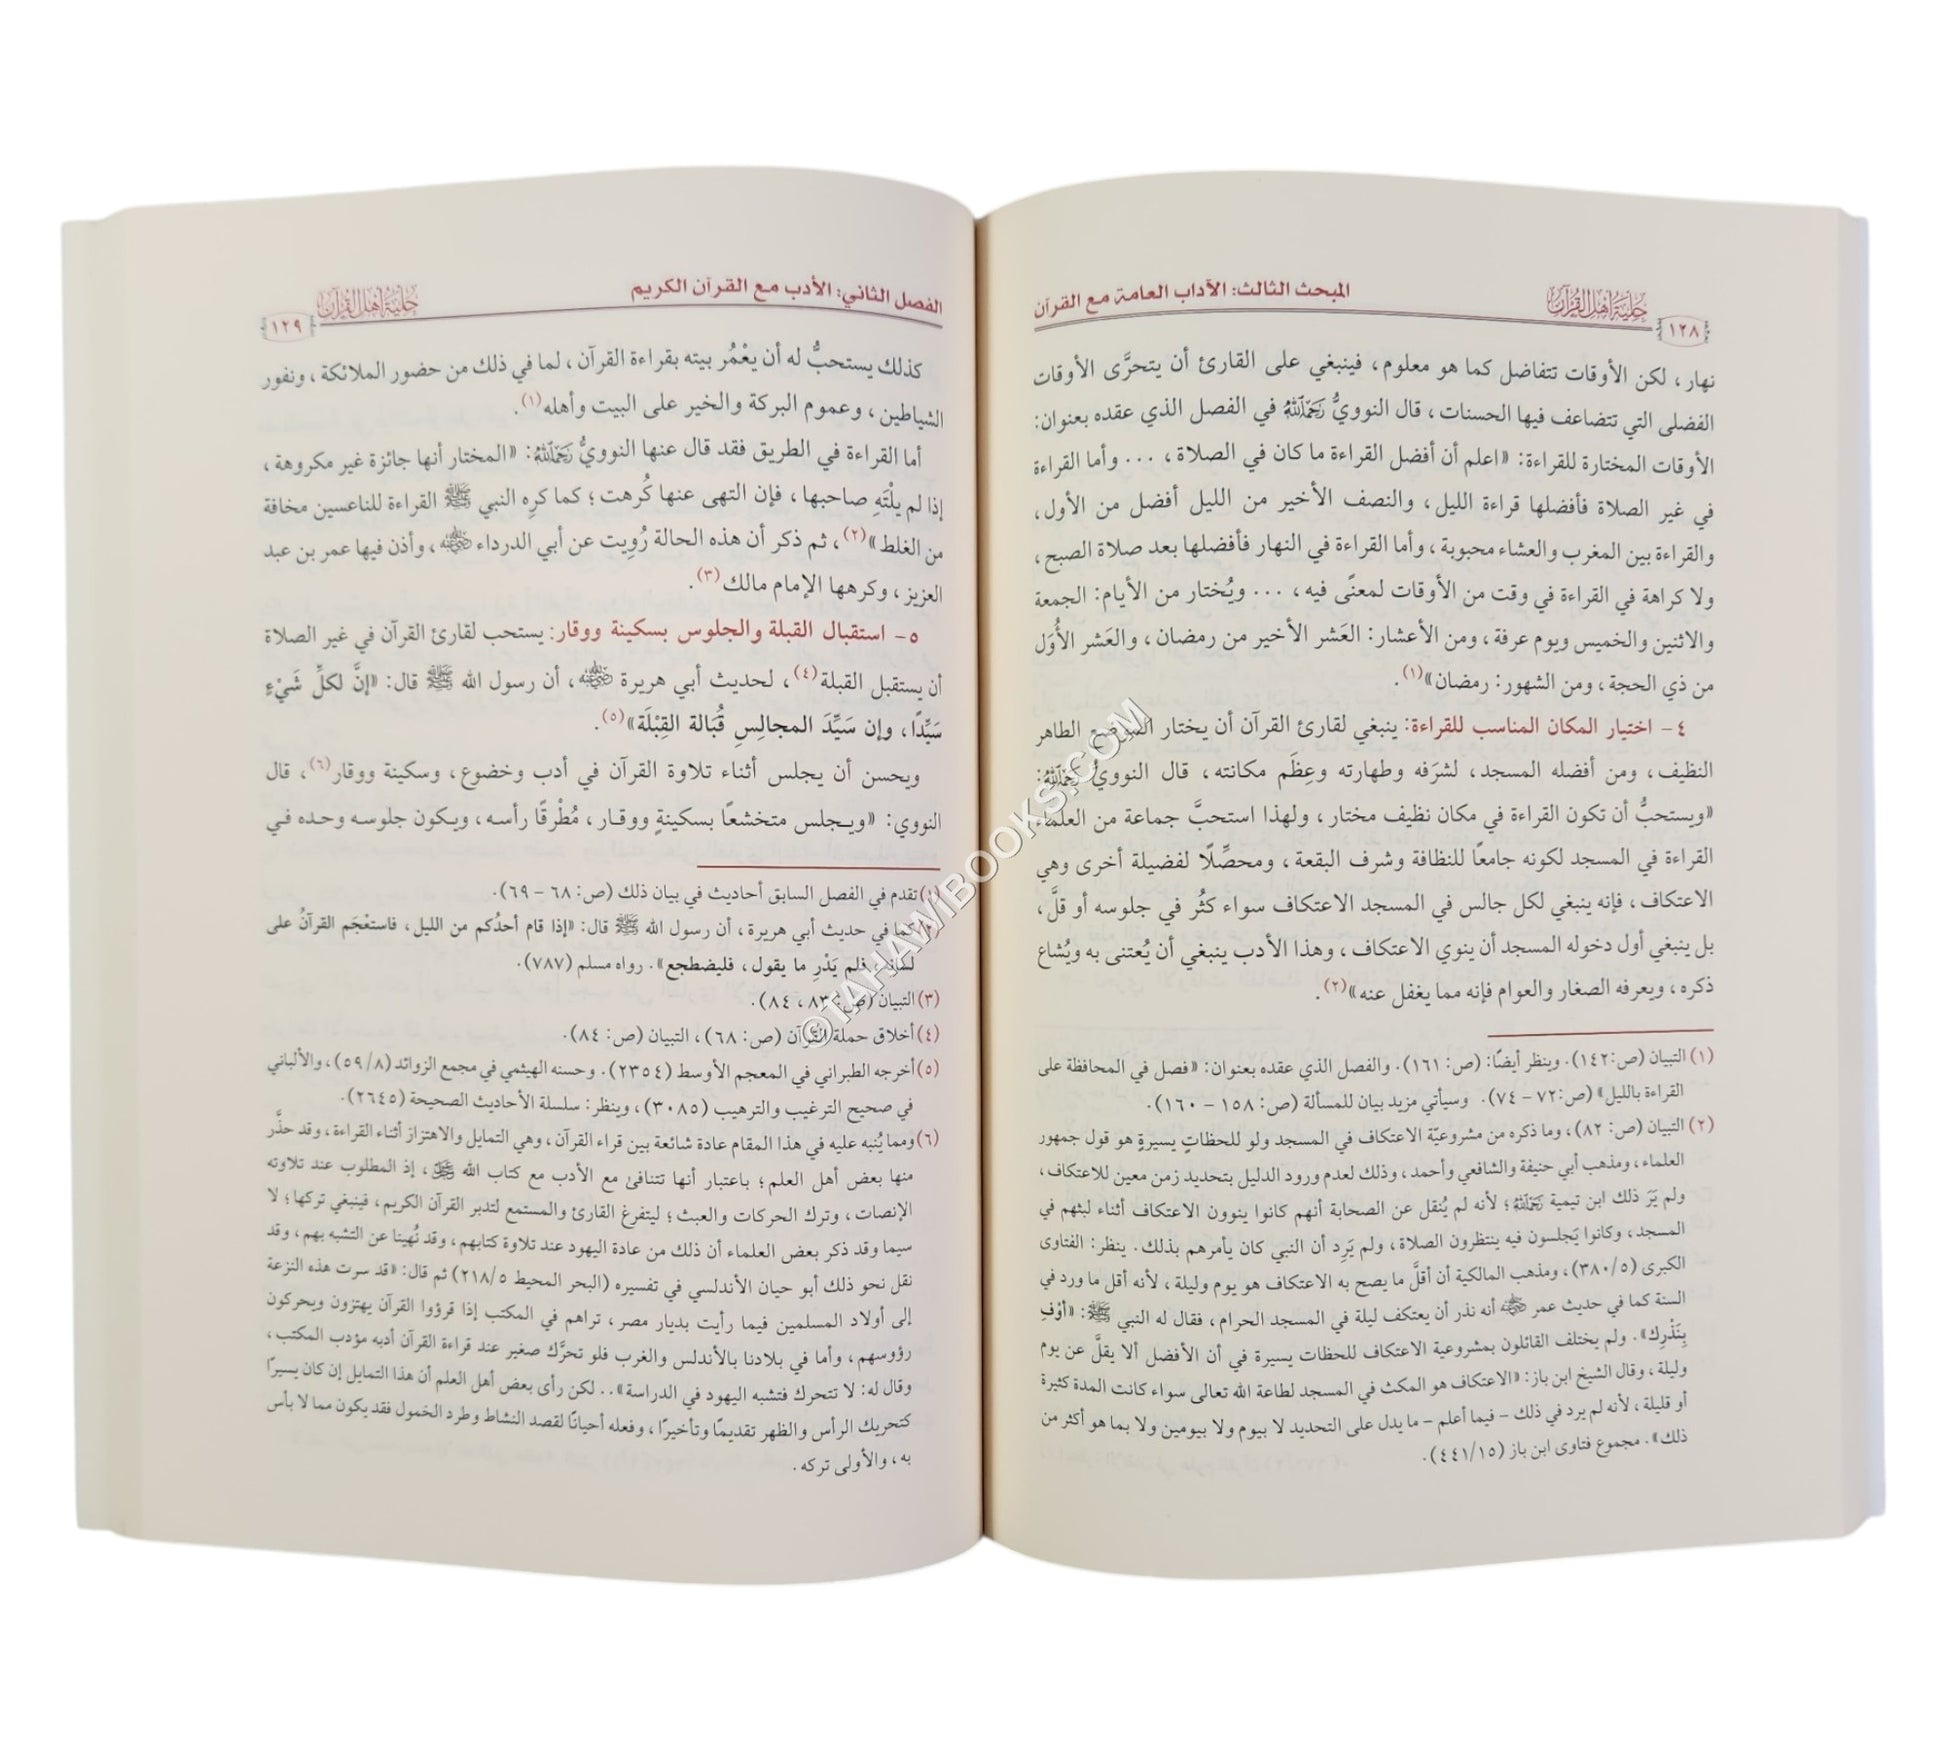 حلية أهل القرآن
المبحث الثالث: الآداب العامة مع القرآن
١٢٨
نهار، لكن الأوقات تتفاضل كما هو معلوم، فينبغي على القارئ أن يتحرَّى الأوقات
الفضلى التي تتضاعف فيها الحسنات، قال النوويُّ رَحِمَهُ اللَّهُ في الفصل الذي عقده بعنوان:
الأوقات المختارة للقراءة: «اعلم أن أفضل القراءة ما كان في الصلاة، ... وأما القراءة
في غير الصلاة فأفضلها قراءة الليل، والنصف الأخير من الليل أفضل من الأول،
والقراءة بين المغرب والعشاء محبوبة، وأما القراءة في النهار فأفضلها بعد صلاة الصبح،
ولا كراهة في القراءة في وقت من الأوقات لمعنًى فيه، ... ويُختار من الأيام: الجمعة
والاثنين والخميس ويوم عرفة، ومن الأعشار: العَشر الأخير من رمضان، والعَشر الأُوَل
من ذي الحجة، ومن الشهور: رمضان»(١).
٤- اختيار المكان المناسب للقراءة: ينبغي لقارئ القرآن أن يختار الموضع الطاهر
النظيف، ومن أفضله المسجد، لشرَفه وطهارته وعِظَم مكانته، قال النوويُّ رَحِمَهُ اللَّهُ:
«ويستحبُّ أن تكون القراءة في مكان نظيف مختار، ولهذا استحبَّ جماعة من العلماء
القراءة في المسجد لكونه جامعًا للنظافة وشرف البقعة، ومحصِّلًا لفضيلة أخرى وهي
الاعتكاف، فإنه ينبغي لكل جالس في المسجد الاعتكاف سواء كثُر في جلوسه أو قلَّ،
بل ينبغي أول دخوله المسجد أن ينوي الاعتكاف، وهذا الأدب ينبغي أن يُعتنى به ويُشاع
ذكره، ويعرفه الصغار والعوام فإنه مما يغفل عنه»(٢).
(١) التبيان (ص:١٤٢). وينظر أيضًا: (ص: ١٦١). والفصل الذي عقده بعنوان: «فصل في المحافظة على
القراءة بالليل» (ص:٧٢ - ٧٤). وسيأتي مزيد بيان للمسألة (ص: ١٥٨ - ١٦٠).
(٢) التبيان (ص: ٨٢)، وما ذكره من مشروعيّة الاعتكاف في المسجد ولو للحظاتٍ يسيرةٍ هو قول جمهور
العلماء، ومذهب أبي حنيفة والشافعي وأحمد، وذلك لعدم ورود الدليل بتحديد زمن معين للاعتكاف،
ولم يَرَ ذلك ابن تيمية رَحِمَهُ اللَّهُ؛ لأنه لم يُنقل عن الصحابة أنهم كانوا ينوون الاعتكاف أثناء لبثهم في
المسجد، وكانوا يَجلسون فيه ينتظرون الصلاة، ولم يَرِد أن النبي كان يأمرهم بذلك. ينظر: الفتاوى
الكبرى (٣٨٠/٥)، ومذهب المالكية أن أقلَّ ما يصح به الاعتكاف هو يوم وليلة، لأنه أقل ما ورد في
السنة كما في حديث عمر رَضِيَ اللَّهُ عَنْهُ أنه نذر أن يعتكف ليلة في المسجد الحرام، فقال له النبي ﷺ: «أوْفِ
بِنَذْرِك». ولم يختلف القائلون بمشروعية الاعتكاف للحظات يسيرة في أن الأفضل ألا يقلَّ عن يوم
وليلة، وقال الشيخ ابن باز: «الاعتكاف هو المكث في المسجد لطاعة الله تعالى سواء كانت المدة كثيرة
أو قليلة، لأنه لم يرد في ذلك - فيما أعلم - ما يدل على التحديد لا بيوم ولا بيومين ولا بما هو أكثر من
ذلك». مجموع فتاوى ابن باز (٤٤١/١٥).
الفصل الثاني: الأدب مع القرآن الكريم
حلية أهل القرآن
١٢٩
كذلك يستحبُّ له أن يعْمُر بيته بقراءة القرآن، لما في ذلك من حضور الملائكة، ونفور
الشياطين، وعموم البركة والخير على البيت وأهله(١).
أما القراءة في الطريق فقد قال عنها النوويُّ رَحِمَهُ اللَّهُ: «المختار أنها جائزة غير مكروهة،
إذا لم يلْتَهِ صاحبها، فإن التهى عنها كُرهت؛ كما كرِه النبي ﷺ القراءة للناعسين مخافة
من الغلط»(٢)، ثم ذكر أن هذه الحالة رُوِيت عن أبي الدرداء رَضِيَ اللَّهُ عَنْهُ، وأذن فيها عمر بن عبد
العزيز، وكرهها الإمام مالك(٣).
٥- استقبال القبلة والجلوس بسكينة ووقار: يستحب لقارئ القرآن في غير الصلاة
أن يستقبل القبلة(٤)، لحديث أبي هريرة رَضِيَ اللَّهُ عَنْهُ، أن رسول الله ﷺ قال: «إنَّ لكلِّ شَيْءٍ
سَيِّدًا، وإن سَيِّدَ المجالِسِ قُبَالة القِبْلَة»(٥).
ويحسن أن يجلس أثناء تلاوة القرآن في أدب وخضوع، وسكينة ووقار(٦)، قال
النووي: «ويـجلس متخشعًا بسكينةٍ ووقـار، مُطْرقًا رأسـه، ويكون جلوسه وحده في
(١) تقدم في الفصل السابق أحاديث في بيان ذلك (ص: ٦٨ - ٦٩).
(٢) كما في حديث أبي هريرة، أن رسول الله ﷺ قال: «إذا قام أحدُكم من الليل، فاستعْجَم القرآنُ على
لسانه، فلم يَدْرِ ما يقول، فليضطجع». رواه مسلم (٧٨٧).
(٣) التبيان (ص: ٨٣، ٨٤).
(٤) أخلاق حملة القُرآن (ص: ٦٨)، التبيان (ص: ٨٤).
(٥) أخرجه الطبراني في المعجم الأوسط (٢٣٥٤). وحسنه الهيثمي في مجمع الزوائد (٥٩/٨)، والألباني
في صحيح الترغيب والترهيب (٣٠٨٥)، وينظر: سلسلة الأحاديث الصحيحة (٢٦٤٥).
(٦) ومما يُنبه عليه في هذا المقام عادة شائعة بين قراء القرآن، وهي التمايل والاهتزاز أثناء القراءة، وقد حذَّر
منها بعض أهل العلم؛ باعتبار أنها تتنافئ مع الأدب مع كتاب الله عَزَّ وَجَلَّ، إذ المطلوب عند تلاوته
الإنصات، وترك الحركات والعبث؛ ليتفرغ القارئ والمستمع لتدبر القرآن الكريم، فينبغي تركها؛ لا
سيما وقد ذكر بعض العلماء أن ذلك من عادة اليهود عند تلاوة كتابهم، وقد نُهينا عن التشبه بهم، وقد
نقل نحو ذلك أبو حيان الأندلسي في تفسيره (البحر المحيط ٢١٨/٥) ثم قال: «قد سرت هذه النزعة
إلى أولاد المسلمين فيما رأيت بديار مصر، تراهم في المكتب إذا قرؤوا القرآن يهتزون ويحركون
رؤوسهم، وأما في بلادنا بالأندلس والغرب فلو تحرَّك صغير عند قراءة القرآن أدبه مؤدب المكتب،
وقال له: لا تتحرك فتشبه اليهود في الدراسة».. لكن رأى بعض أهل العلم أن هذا التمايل إن كان يسيرًا
كتحريك الرأس والظهر تقديمًا وتأخيرًا، وفعله أحيانًا لقصد النشاط وطرد الخمول فقد يكون مما لا بأس
به، والأولى تركه.
©TAHAWIBOOKS.COM